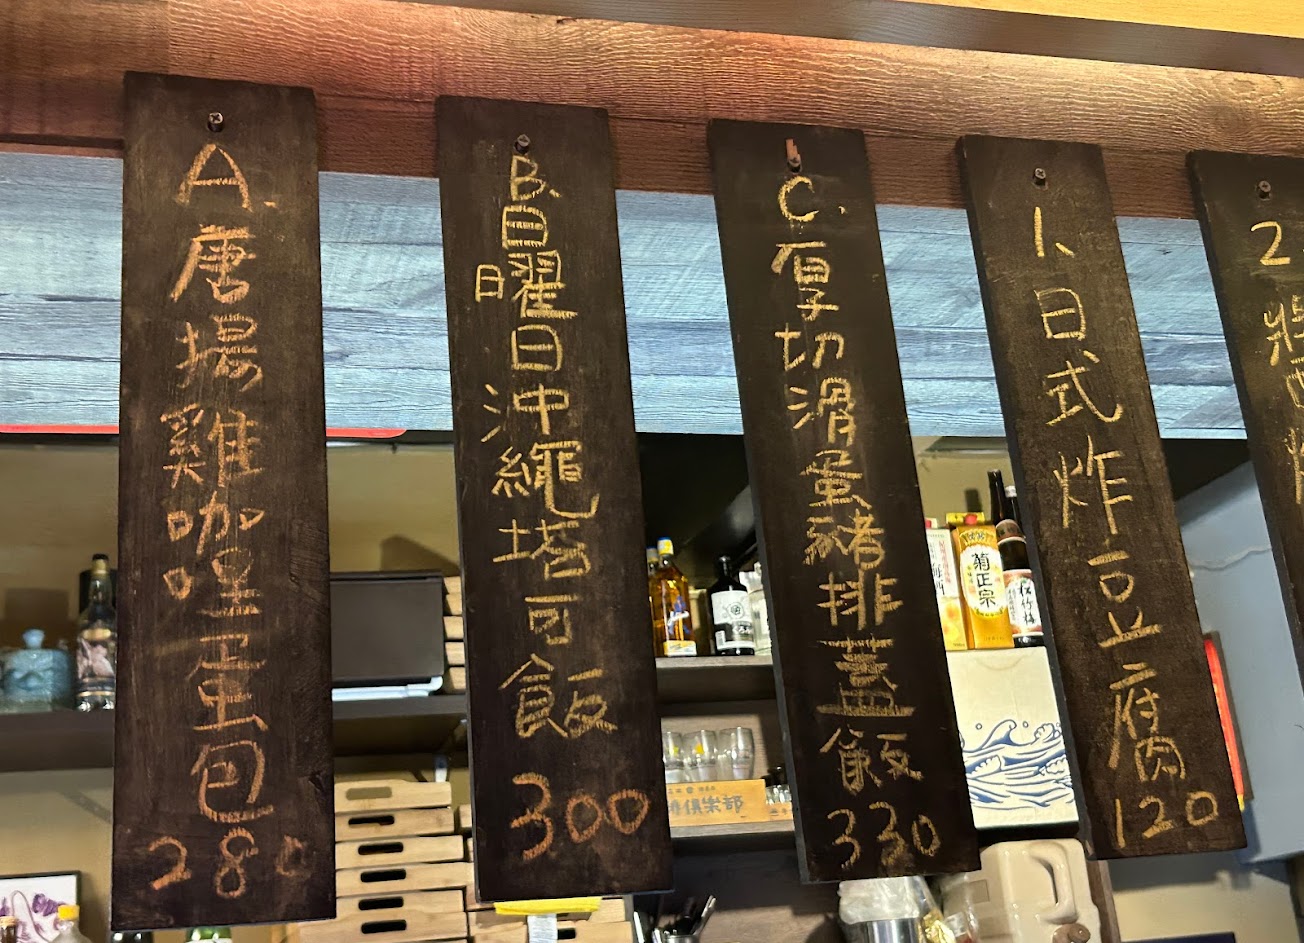 A.唐揚雞咖哩蛋包280
B.日曜日沖繩塔可飯300
C.厚切滑蛋豬排蓋飯330
1、日式炸豆腐120
2
菊正宗
松竹梅
俱楽部